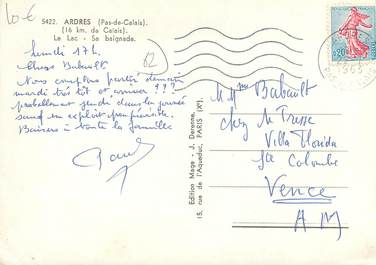 10 €
5422. ARDRES (Pas-de-Calais).
(16 km. de Calais).
Le Lac - Sa baignade.
62
Lundi 17h.
Chers Babault
Nous comptons partir demain
mardi très tôt et arriver ???
probablement jeudi dans la journée
sauf en exploit
Baisers à toute la famille
Edition Mage - J. Derenne,
15, rue de l'Aqueduc, PARIS (Xe).
0,20
1963
M. Mme Babault
chez M. Tresse
Villa Florida
Ste Colombe
Vence
A M